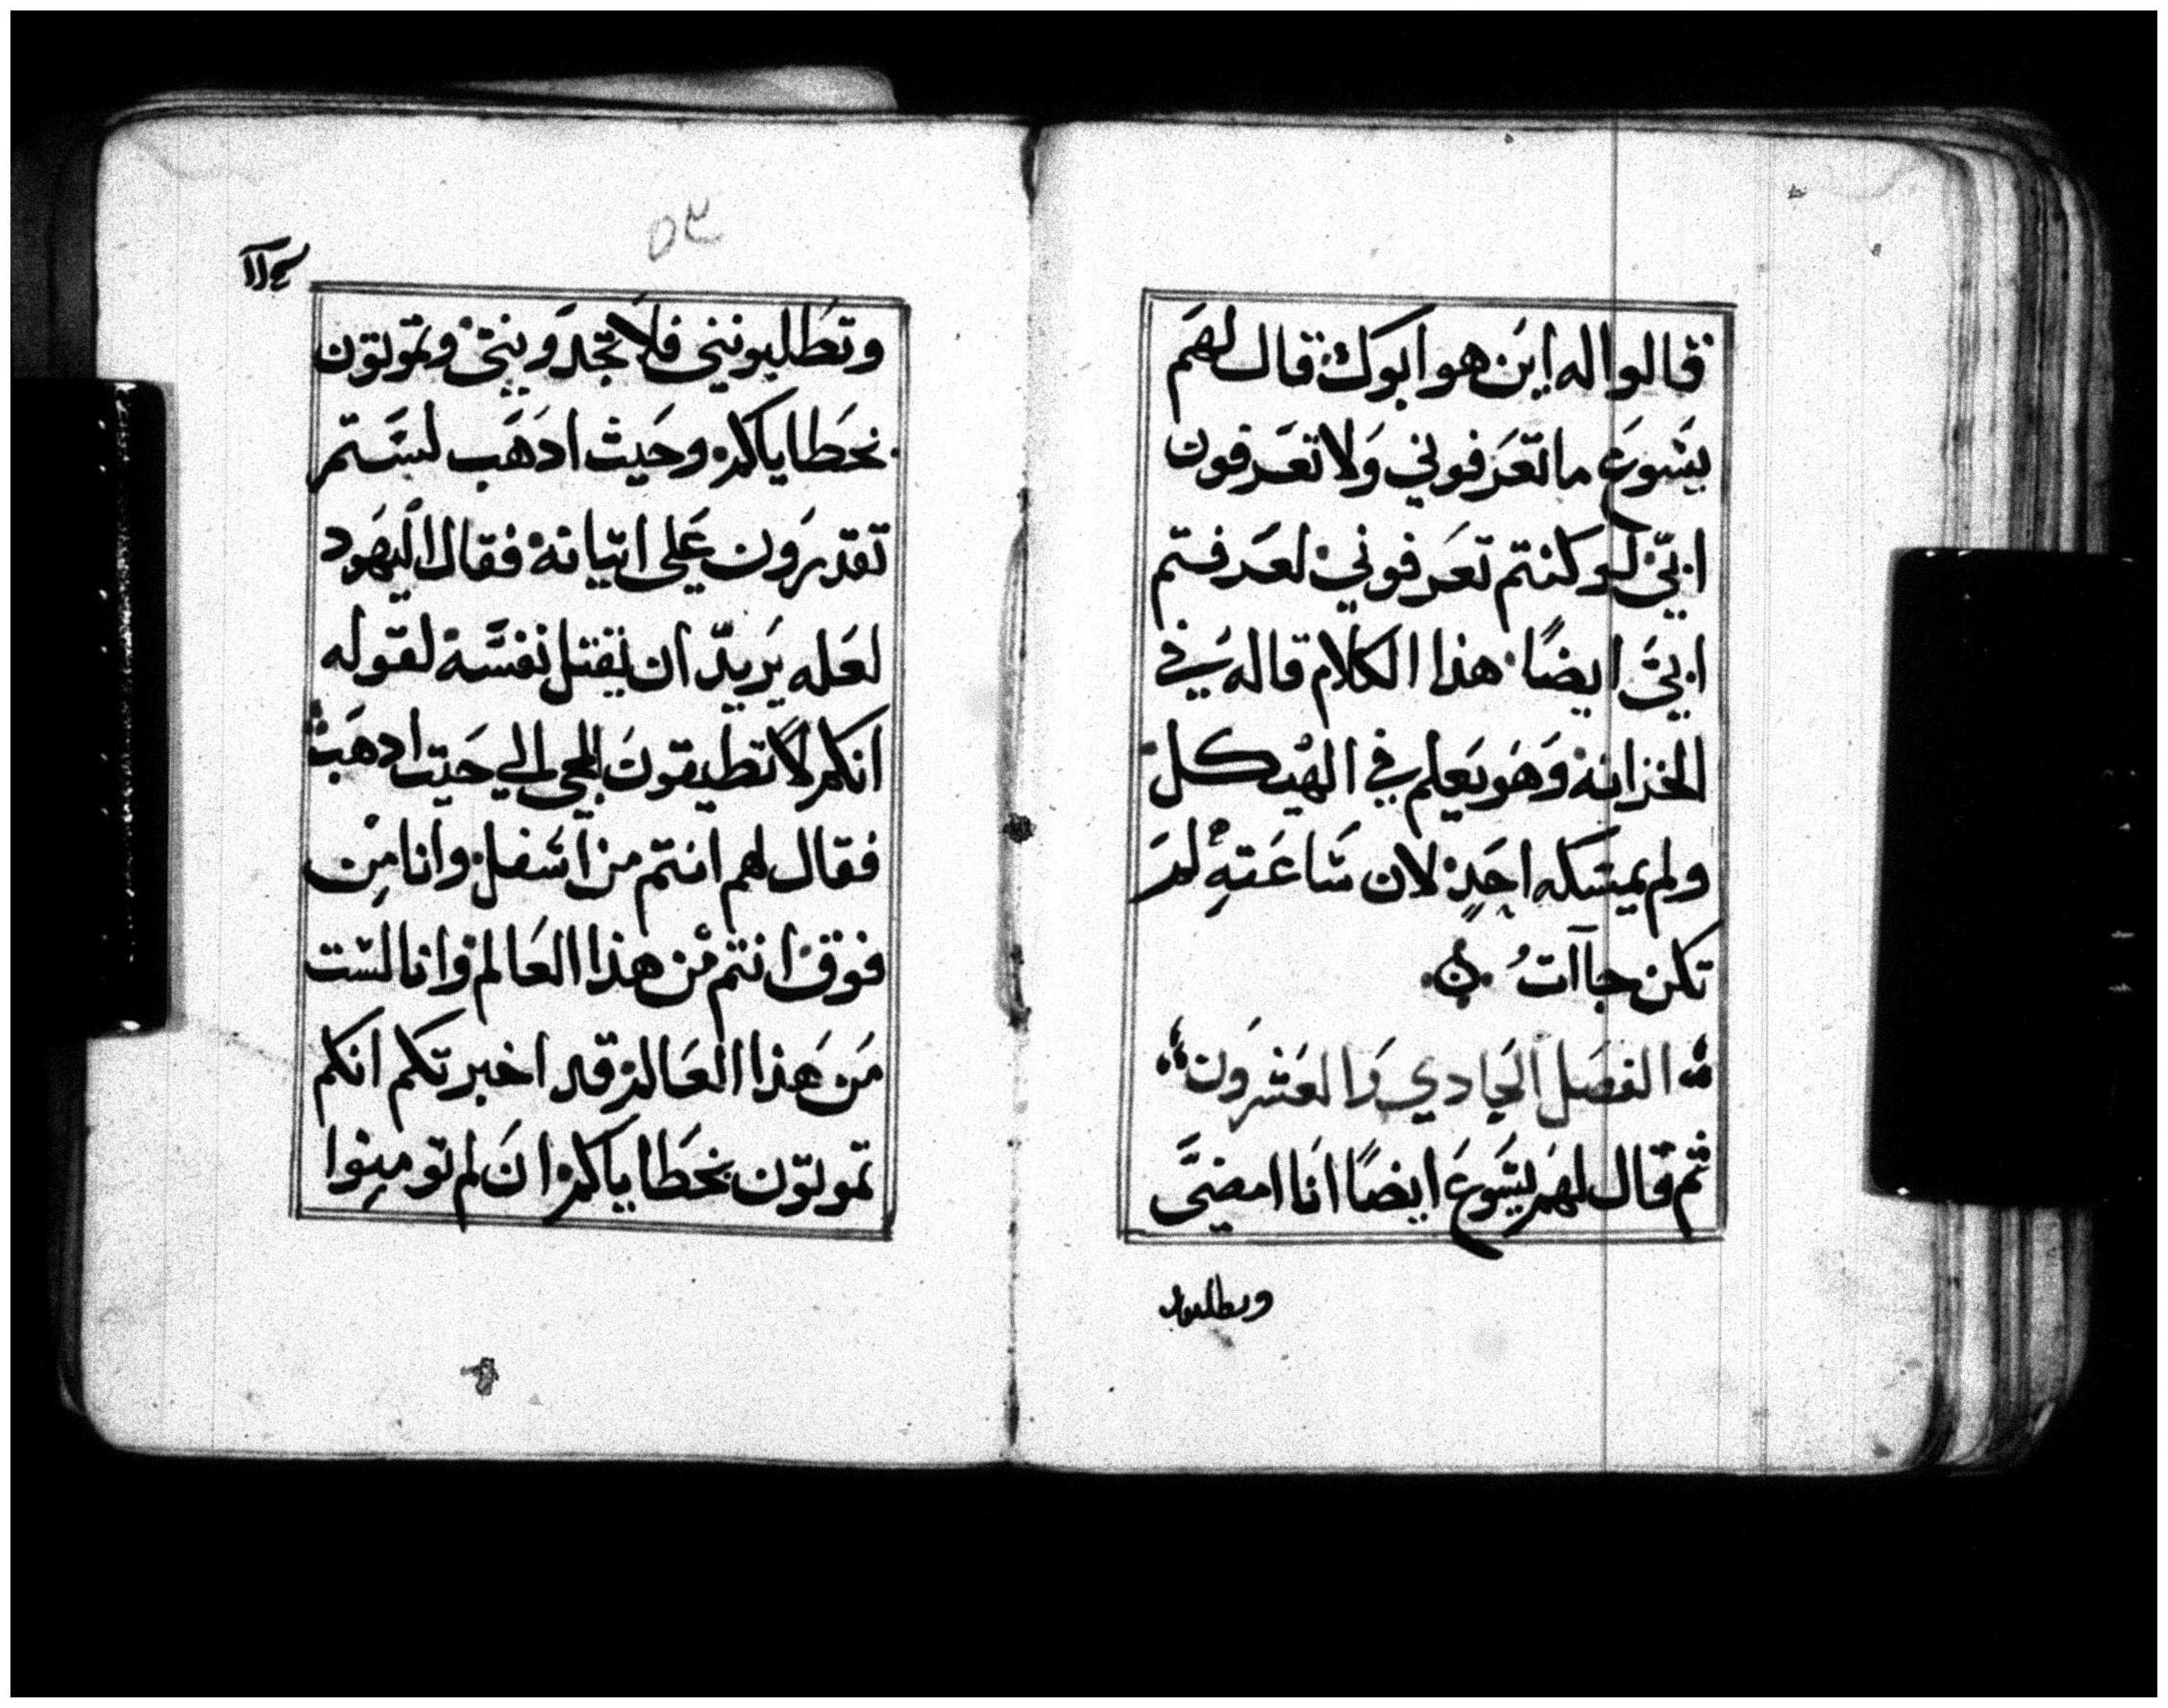 قالوا له اين هو ابوك قال لهم
يسوع ما تعرفوني ولا تعرفون
ابي لو كنتم تعرفوني لعرفتم
ابي ايضًا هذا الكلام قاله في
الخزانة وهو يعلم في الهيكل
ولم يمسكه احدٍ لان ساعته لم
تكن جاآت
الفصل الحادي والعشرون
ثم قال لهم يسوع ايضًا انا امضي
وتطلبون
٥٢
وتطلبونني فلا تجدونني وتموتون
بخطاياكم وحيث ادهب لستم
تقدرون على اتيانه فقال اليهود
لعله يريد ان يقتل نفسه لقوله
انكم لا تطيقون المجي الي حيت ادهب
فقال لهم انتم من اسفل وانا من
فوق انتم من هذا العالم وانا لست
من هذا العالم قد اخبرتكم انكم
تموتون بخطاياكم ان لم تومنوا